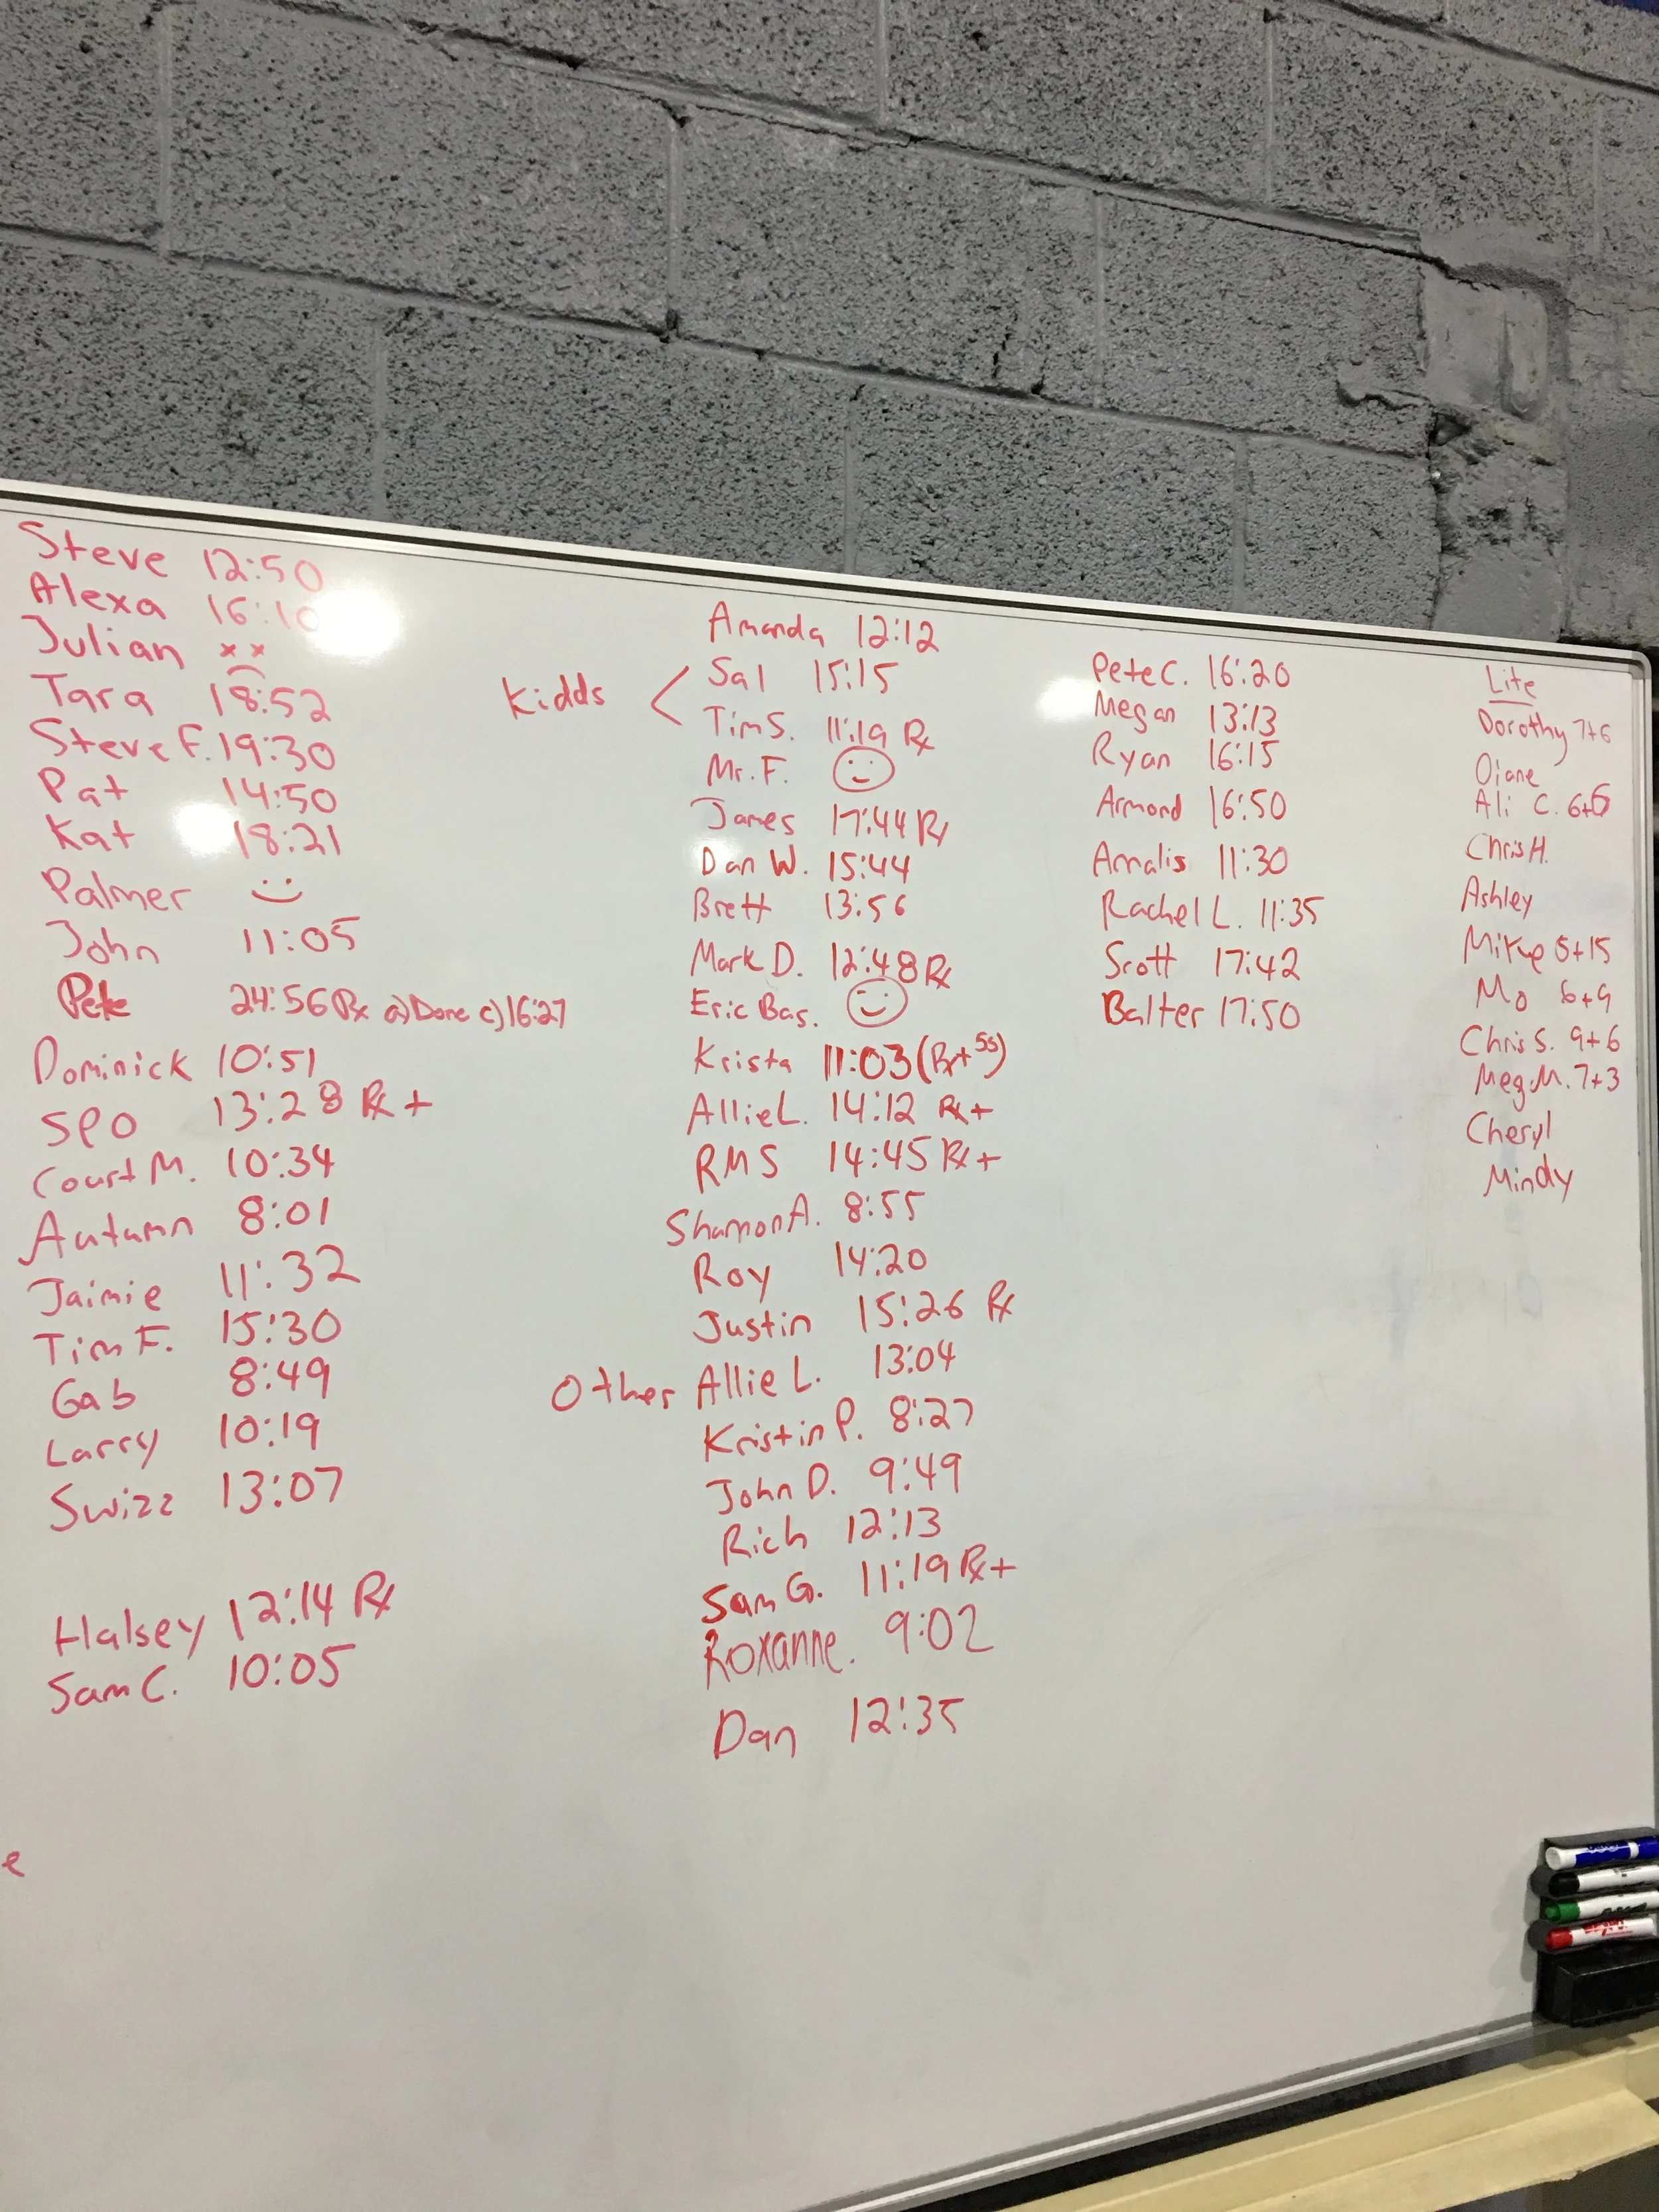 Steve 12:50
Alexa 16:10
Julian x x
Tara 18:52
Steve F. 19:30
Pat 14:50
Kat 18:21
Palmer
John 11:05
Pete 24:56 Rx a) Done c) 16:27
Dominick 10:51
SPO 13:28 Rx +
Court M. 10:34
Autumn 8:01
Jaimie 11:32
Tim F. 15:30
Gab 8:49
Larry 10:19
Swizz 13:07
Halsey 12:14 Rx
Sam C. 10:05
e
Amanda 12:12
Kidds < Sal 15:15
Tim S. 11:19 Rx
Mr. F.
James 17:44 Rx
Dan W. 15:44
Brett 13:56
Mark D. 12:48 Rx
Eric Bas.
Krista 11:03 (Rx+ 55)
Allie L. 14:12 Rx+
RMS 14:45 Rx+
Shannon A. 8:55
Roy 14:20
Justin 15:26 Rx
Other Allie L. 13:04
Kristin P. 8:27
John D. 9:49
Rich 12:13
Sam G. 11:19 Rx+
Roxanne. 9:02
Dan 12:35
Pete C. 16:20
Megan 13:13
Ryan 16:15
Armond 16:50
Annalis 11:30
Rachel L. 11:35
Scott 17:42
Balter 17:50
Lite
Dorothy 7+6
Diane
Ali C. 6+6
Chris H.
Ashley
Mike 5+15
Mo 6+9
Chris S. 9+6
Meg M. 7+3
Cheryl
Mindy